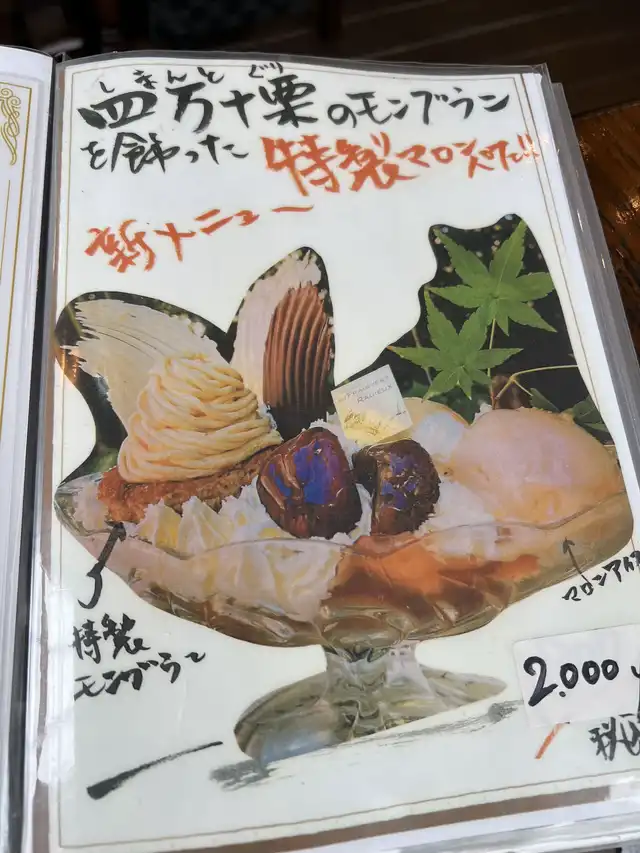 しまんと ぐり
四万十栗のモンブラン
を飾った 特製マロンパフェ!!
新メニュー
特製
モンブラン
マロンアイス
2.000
税込